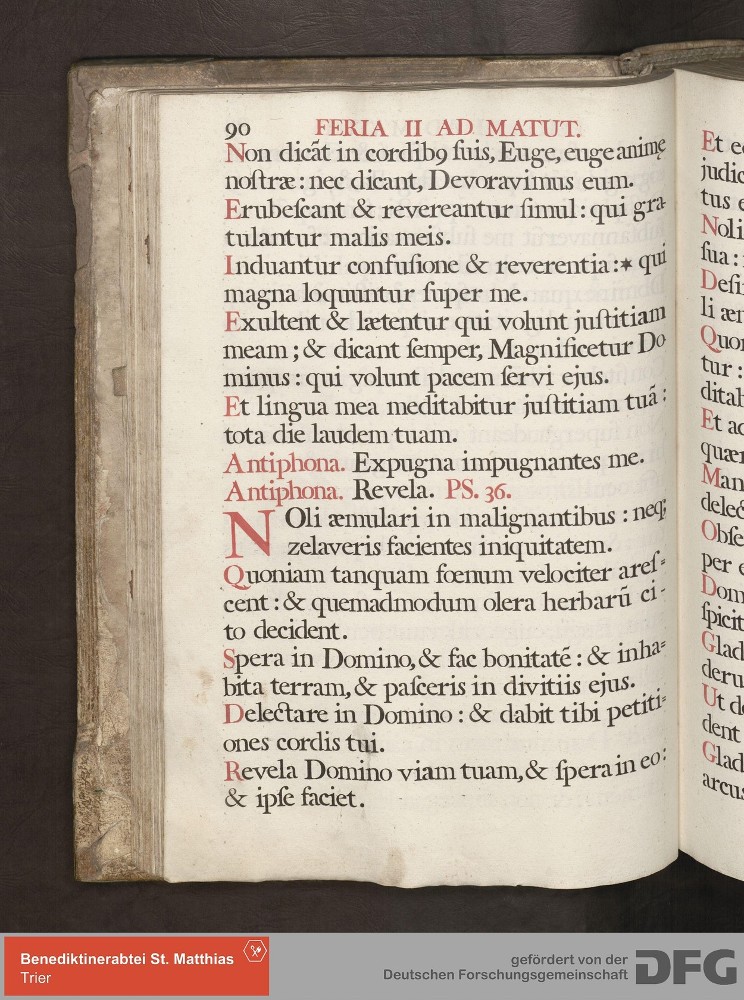 90 FERIA II AD MATUT.
Non dicãt in cordibꝯ ſuis, Euge, euge animę
noſtræ : nec dicant, Devoravimus eum.
Erubeſcant & revereantur ſimul : qui gra-
tulantur malis meis.
Induantur confuſione & reverentia :✶ qui
magna loquuntur ſuper me.
Exultent & lætentur qui volunt juſtitiam
meam ; & dicant ſemper, Magnificetur Do-
minus : qui volunt pacem ſervi ejus.
Et lingua mea meditabitur juſtitiam tuã :
tota die laudem tuam.
Antiphona. Expugna impugnantes me.
Antiphona. Revela. PS. 36.
NOli æmulari in malignantibus : neqꝫ
zelaveris facientes iniquitatem.
Quoniam tanquam fœnum velociter areſ-
cent : & quemadmodum olera herbarũ ci-
to decident.
Spera in Domino, & fac bonitatẽ : & inha-
bita terram, & paſceris in divitiis ejus.
Delectare in Domino : & dabit tibi petiti-
ones cordis tui.
Revela Domino viam tuam, & ſpera in eo :
& ipſe faciet.
Et e
judic
tus e
Noli
ſua :
Defi
li æn
Quon
tur :
ditab
Et ad
quær
Man
delec
Obſe
per e
Dom
ſpicit
Glad
deru
Ut de
dent
Glad
arcus
Benediktinerabtei St. Matthias
Trier
gefördert von der
Deutschen Forschungsgemeinschaft
DFG